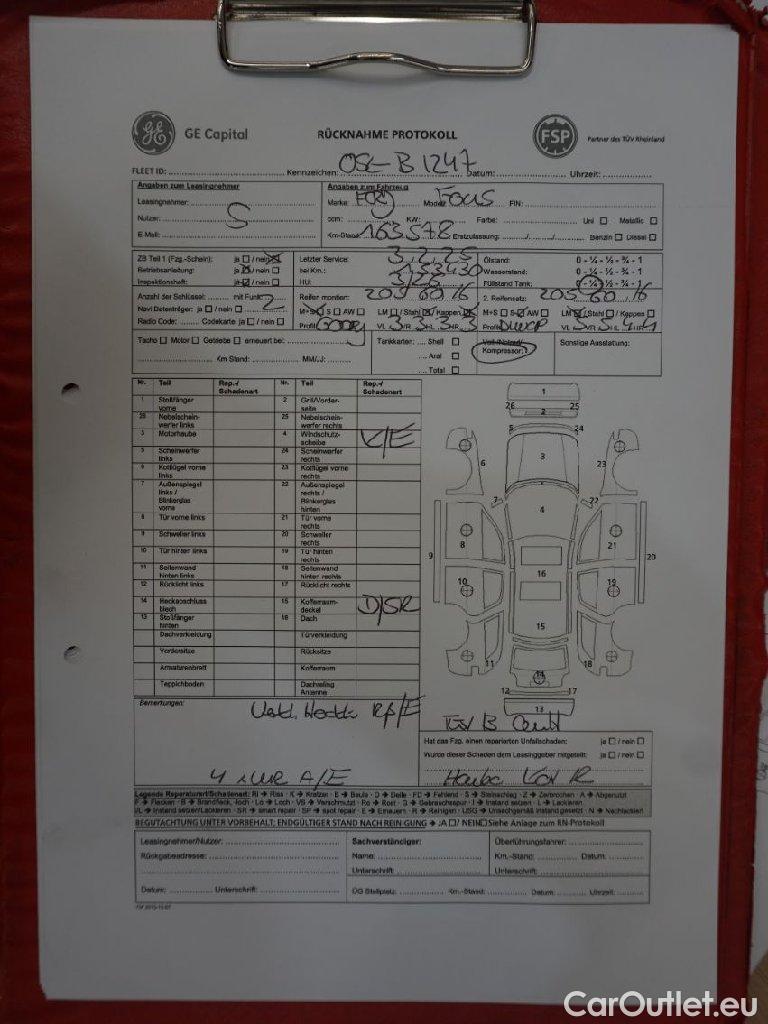 GE Capital
RÜCKNAHME PROTOKOLL
FSP
Partner des TÜV Rheinland
FLEET ID: Kennzeichen: B 1247 Datum: Uhrzeit:
Angaben zum Leasingnehmer
Angaben zum Fahrzeug
Leasingnehmer:
Marke: Modell: FIN:
Nutzer: S
ccm: KW: Farbe: Uni □ Metallic □
E-Mail:
Km-Stand: 163578 Erstzulassung: Benzin □ Diesel □
ZB Teil 1 (Fzg.-Schein): ja □ / nein
Betriebsanleitung: ja / nein □
Inspektionsheft: ja / nein □
Letzter Service: 3.2.25
bei Km.: 153430
HU:
Ölstand: 0 - ¼ - ½ - ¾ - 1
Wasserstand: 0 - ¼ - ½ - ¾ - 1
Füllstand Tank: 0 - ¼ - ½ - ¾ - 1
Anzahl der Schlüssel: mit Funk: 2
Navi Datenträger: ja □ / nein □
Radio Code: Codekarte ja □ / nein □
Reifen montiert: 205 60 16
M+S S □ AW □ LM □ / Stahl / Kappen
Profil VL 3 VR 3 HL 3 HR 3
2. Reifensatz: 205 60 16
M+S □ S AW □ LM / Stahl □ / Kappen □
Profil VL VR HL HR
Tacho □ Motor □ Getriebe □ erneuert bei:
Km Stand: MM/J:
Tankkarten: Shell □
Aral □
Total □
Kompressor:
Sonstige Ausstattung:
Nr. Teil Rep.-/ Schadenart Nr. Teil Rep.-/ Schadenart
1 Stoßfänger vorne 2 Grill/Vorderseite
26 Nebelscheinwerfer links 25 Nebelscheinwerfer rechts
3 Motorhaube 4 Windschutzscheibe K/E
5 Scheinwerfer links 24 Scheinwerfer rechts
6 Kotflügel vorne links 23 Kotflügel vorne rechts
7 Außenspiegel links / Blinkerglas vorne 22 Außenspiegel rechts / Blinkerglas hinten
8 Tür vorne links 21 Tür vorne rechts
9 Schweller links 20 Schweller rechts
10 Tür hinten links 19 Tür hinten rechts
11 Seitenwand hinten links 18 Seitenwand hinten rechts
12 Rücklicht links 17 Rücklicht rechts
14 Heckabschluss blech 15 Kofferraumdeckel D/SR
13 Stoßfänger hinten 16 Dach
Dachverkleidung Türverkleidung
Vordersitze Rücksitze
Armaturenbrett Kofferraum
Teppichboden Dachreling Antenne
1
26 25
2
5 24
3
6 23
7 22
4
8 21
9 20
10 19
16
15
11 18
14
12 17
13
Bemerkungen:
4 x A/E
Hat das Fzg. einen reparierten Unfallschaden: ja □ / nein □
Wurde dieser Schaden dem Leasinggeber mitgeteilt: ja □ / nein □
Haube
Legende Reparaturart/Schadenart: RI → Riss · K → Kratzer · E → Beule · D → Delle · FC → Fehlend · S → Steinschlag · Z → Zerbrochen · A → Abgenutzt
F → Flecken · B → Brandfleck, -loch · Lo → Loch · VS → Verschmutzt · Ro → Rost · G → Gebrauchsspur · I → Instand setzen · L → Lackieren
I/L → Instand setzen/Lackieren · SR → smart repair · SP → spot repair · E → Erneuern · R → Reinigen · USG → Unsachgemäß instand gesetzt · N → Nachlackiert
BEGUTACHTUNG UNTER VORBEHALT; ENDGÜLTIGER STAND NACH REINIGUNG → JA □ / NEIN □ Siehe Anlage zum RN-Protokoll
Leasingnehmer/Nutzer:
Sachverständiger:
Überführungsfahrer:
Rückgabeadresse:
Name:
Km.-Stand: Datum:
Unterschrift:
Unterschrift:
Datum: Unterschrift:
ÜG Stellplatz: Km.-Stand: Datum: Uhrzeit:
CarOutlet.eu